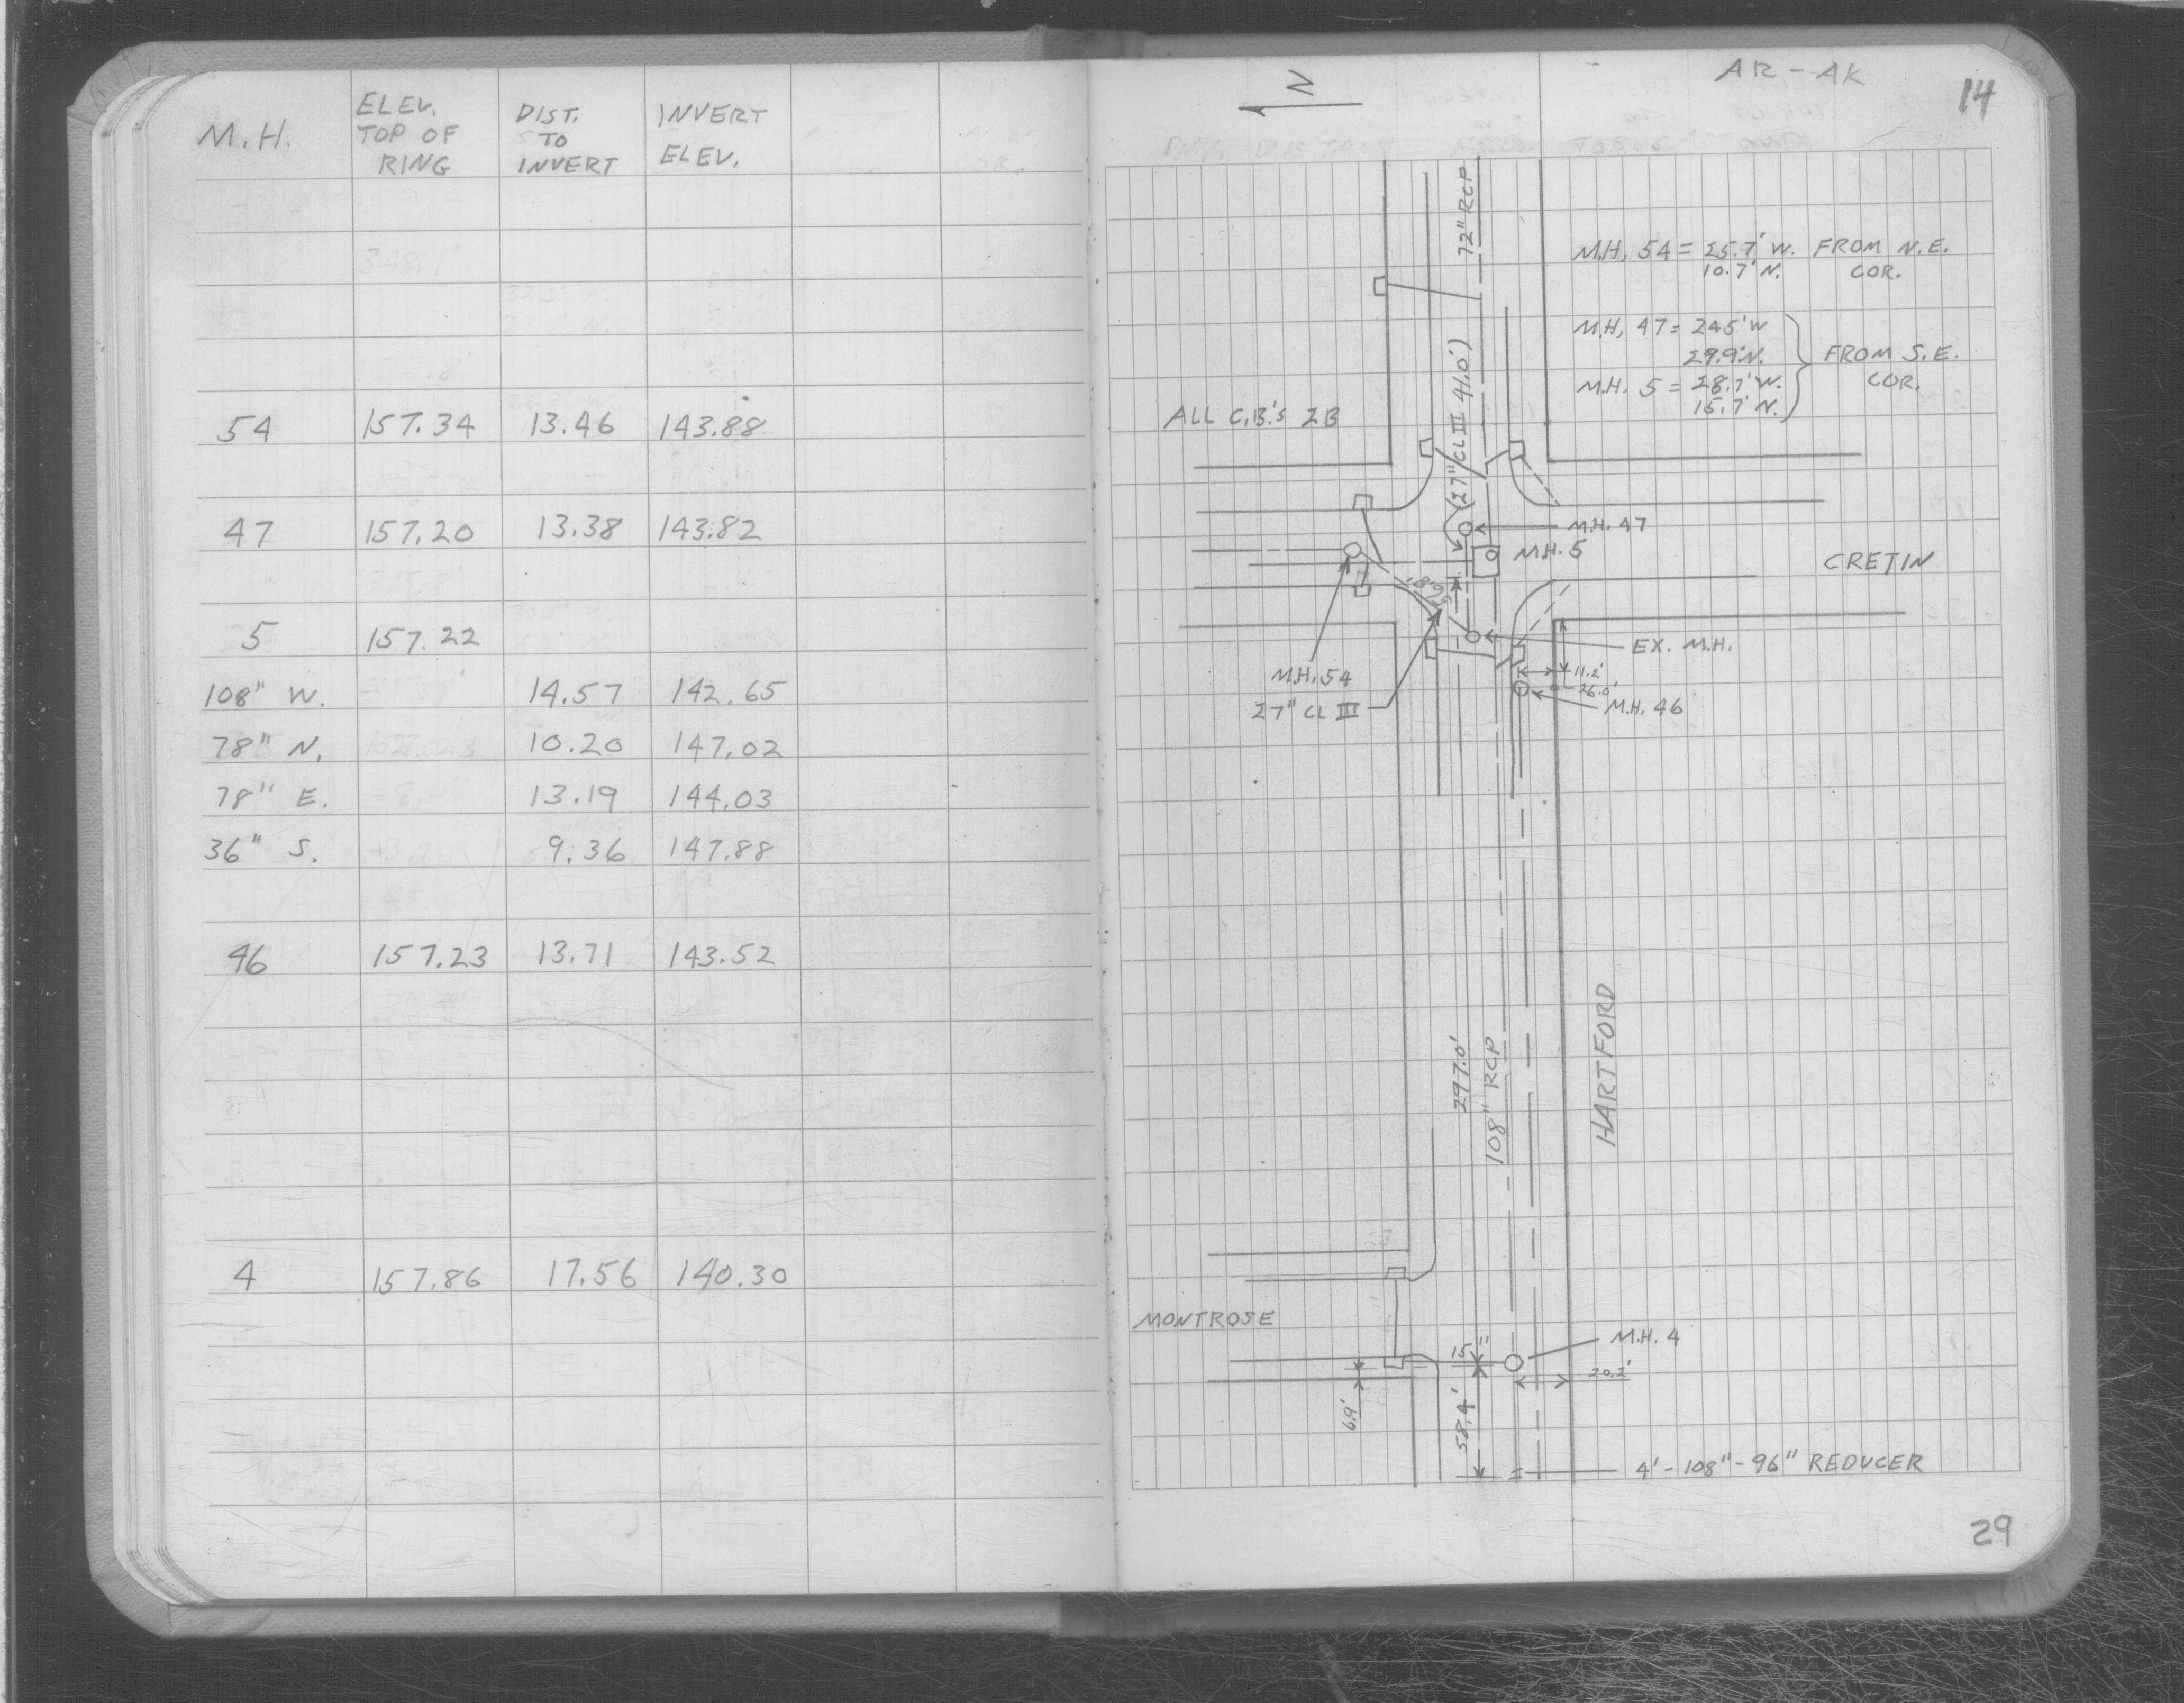 M.H.
ELEV. TOP OF RING
DIST. TO INVERT
INVERT ELEV.
54 157.34 13.46 143.88
47 157.20 13.38 143.82
5 157.22
108" W. 14.57 142.65
78" N. 10.20 147.02
78" E. 13.19 144.03
36" S. 9.36 147.88
46 157.23 13.71 143.52
4 157.86 17.56 140.30
AR - AK
14
N
72" RCP
M.H. 54 = 25.7' W. FROM N.E.
10.7' N. COR.
M.H. 47 = 24.5' W
29.9' N. FROM S.E.
M.H. 5 = 28.7' W. COR.
15.7' N.
ALL C.B.'s 2B
(27" CL III 41.0')
M.H. 47
M.H. 5
CRETIN
EX. M.H.
M.H. 54
27" CL III
11.2'
26.0'
M.H. 46
297.0'
108" RCP
HARTFORD
MONTROSE
15"
M.H. 4
20.2'
6.9'
58.4'
4' - 108" - 96" REDUCER
29